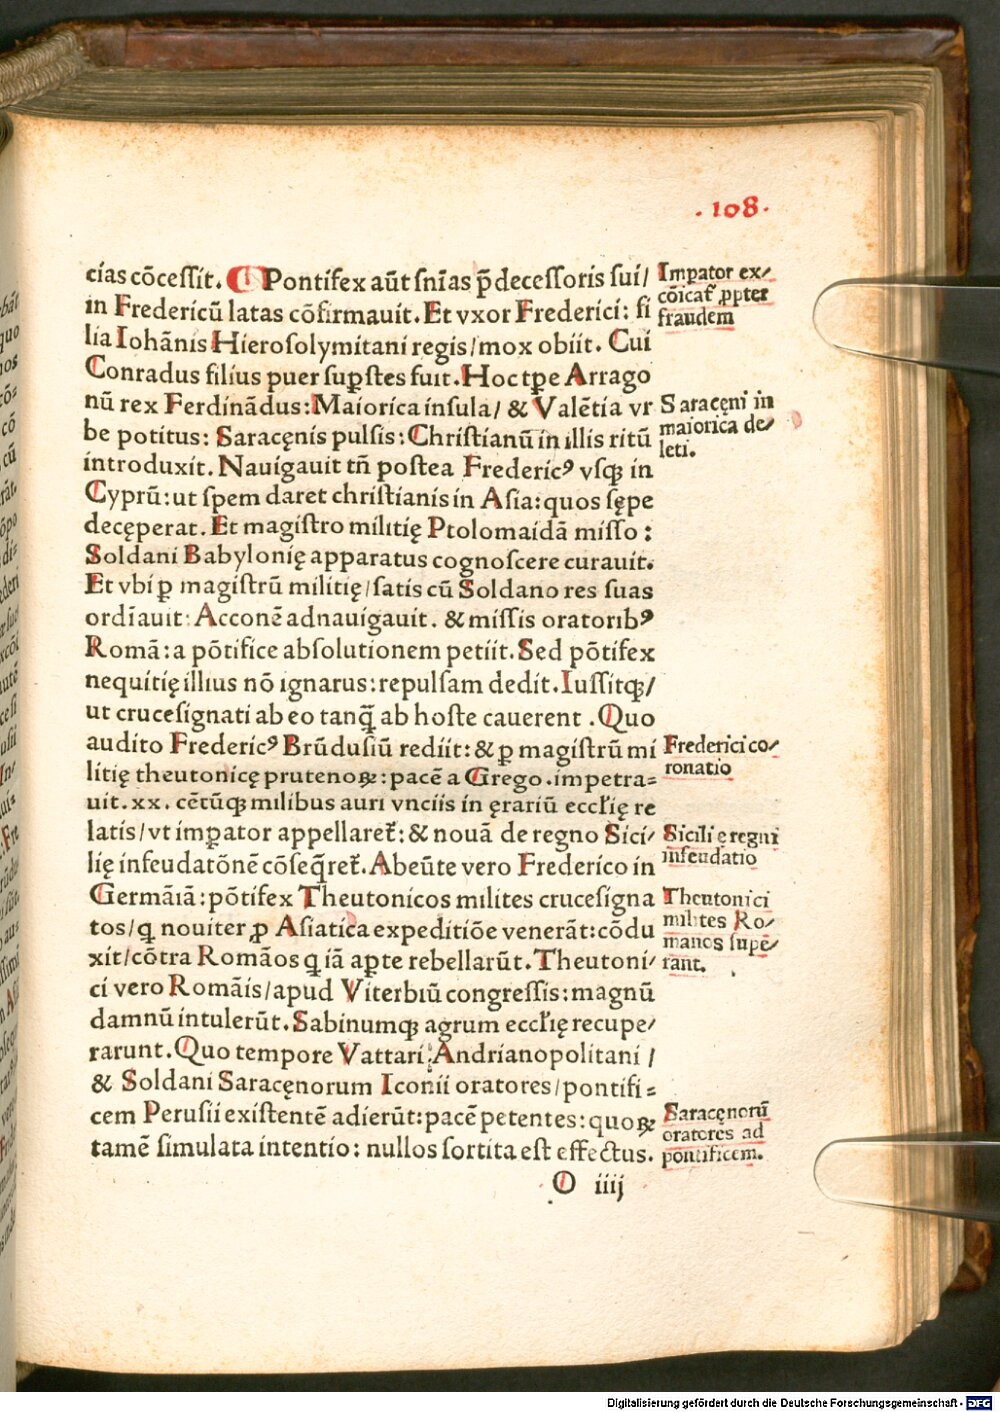 .108.
cías cōceſſit. ¶ Pontifex aūt ſnīas p̄deceſſoris ſui/
in Fredericū latas cōfirmauit. Et vxor Frederici: fi
lia Iohānis Hieroſolymitani regis/mox obiit. Cui
Conradus filius puer ſuꝑſtes fuit. Hoc tꝑe Arrago
nū rex Ferdinādus: Maiorica inſula/ & Valētia vr
be potitus: Saracęnis pulſis: Chriſtianū in illis ritū
introduxit. Nauigauit tn̄ poſtea Frederic⁹ vſqꝫ in
Cyprū: ut ſpem daret chriſtianis in Aſia: quos ſępe
decęperat. Et magiſtro militię Ptolomaidā miſſo:
Soldani Babylonię apparatus cognoſcere curauit.
Et vbi ꝑ magiſtrū militię/ſatis cū Soldano res ſuas
ordīauit: Acconē adnauigauit. & miſſis oratorib⁹
Romā: a pōtifice abſolutionem petiit. Sed pōtifex
nequitię illius nō ignarus: repulſam dedit. Iuſſitqꝫ/
ut cruceſignati ab eo tanq̄ ab hoſte cauerent. Quo
audito Frederic⁹ Brūduſiū rediit: & ꝑ magiſtrū mi
litię theutonicę prutenoꝝ: pacē a Grego. impetra=
uit. xx. cētūqꝫ milibus auri vnciis in ęrariū eccłię re
latis/vt imꝑator appellaret̄: & nouā de regno Sici/
lię infeudatōnē cōſeq̄ret̄. Abeūte vero Frederico in
Germāiā: pōtifex Theutonicos milites cruceſigna
tos/ꝗ nouiter ꝓ Aſiatica expeditiōe venerāt: cōdu
xit/cōtra Romāos ꝗ iā aꝑte rebellarūt. Theutoni/
ci vero Romāis/apud Viterbiū congreſſis: magnū
damnū intulerūt. Sabinumqꝫ agrum eccłię recupe/
rarunt. Quo tempore Vattari: Andrianopolitani /
& Soldani Saracęnorum Iconii oratores/pontifi=
cem Peruſii exiſtentē adierūt: pacē petentes: quoꝝ
tamē ſimulata intentio: nullos ſortita eſt effectus.
O iiij
Imꝑator ex/
cōicat᷒ ꝓpter
fraudem
Saracęni in
maiorica de/
leti.
Frederici co/
ronatio
Sicilię regni
infeudatio
Theutonici
milites Ro/
manos ſupē/
rant.
Saracęnorū
oratores ad
pontificem.
Digitalisierung gefördert durch die Deutsche Forschungsgemeinschaft - DFG